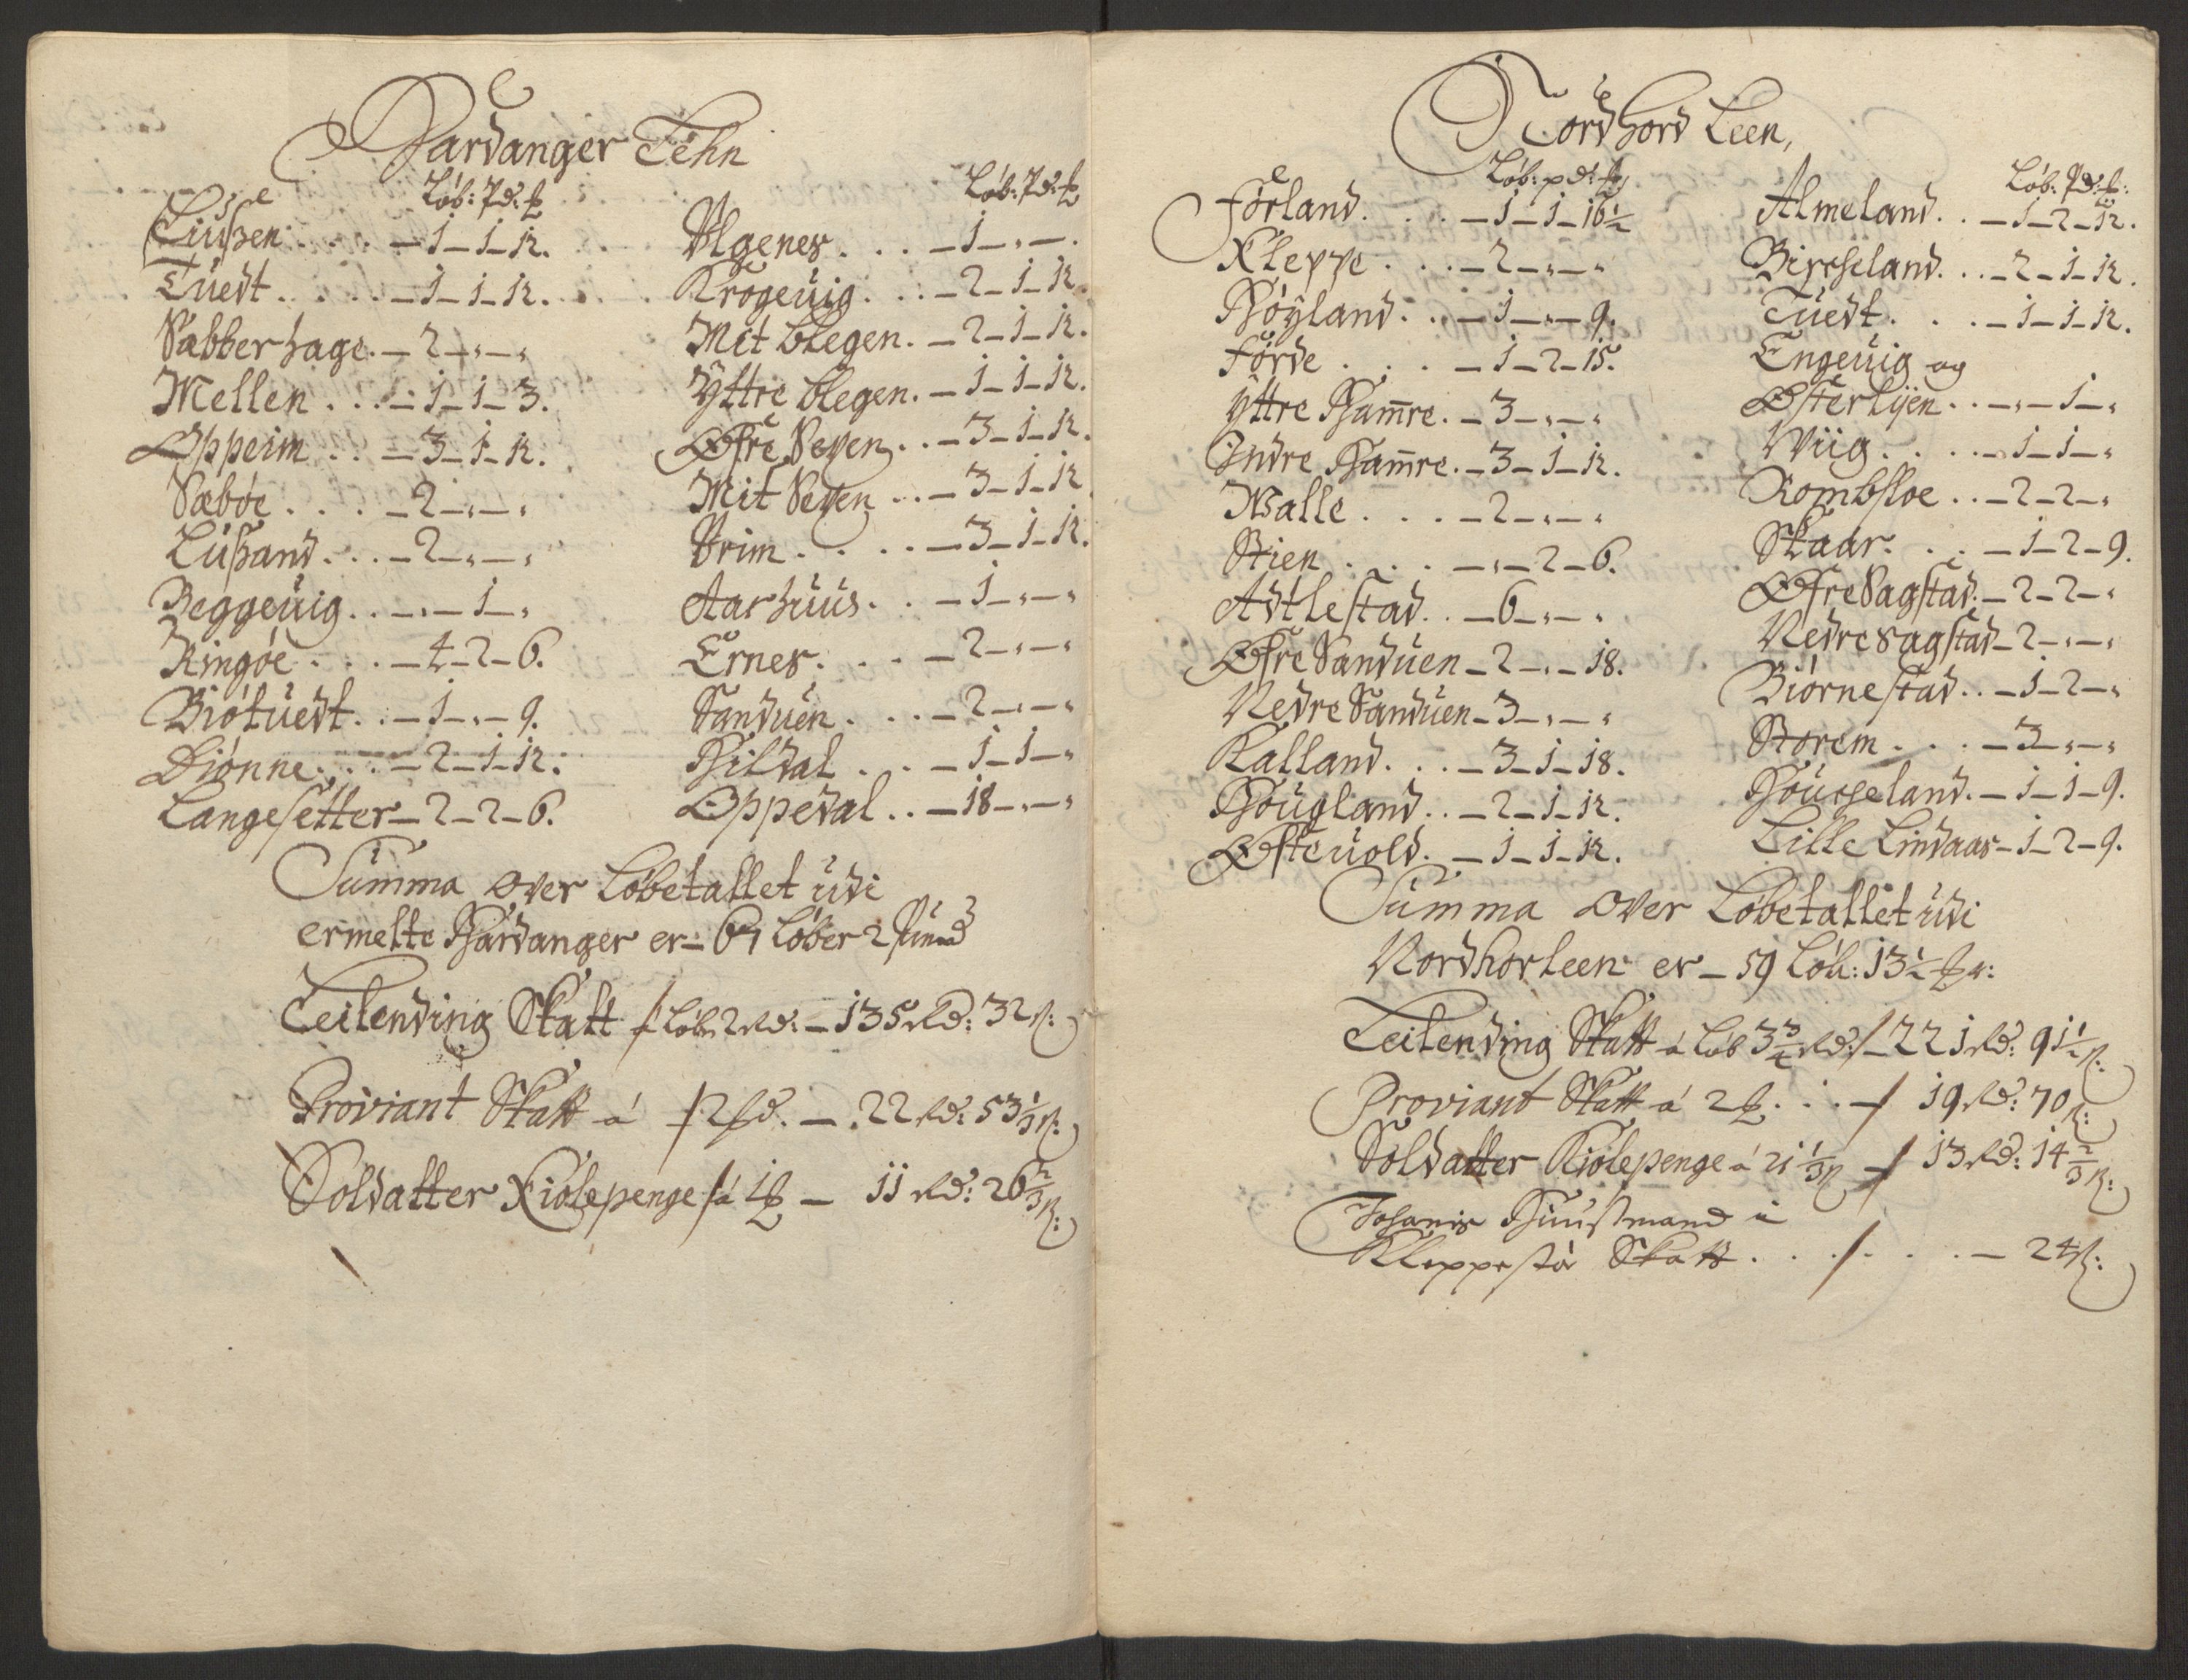 Hardanger Lehn
Löb: Pd: ℔
Liussen . . . . – 1 – 1 – 12.
Tuedt . . . . – 1 – 1 – 12.
Sæbberhage. – 2 – " – "
Mellen . . . – 1 – 1 – 3.
Oppeim . . – 3 – 1 – 12.
Sæbøe . . . – 2 – " – "
Lussand . . . – 2 – " – "
Beggeuig . . – " – 1 – "
Ringøe . . . – 4 – 2 – 6.
Biótuedt . . – 1 – " – 9.
Diónne . . . – 2 – 1 – 12.
Langesetter – 2 – 2 – 6.
Löb: Pd: ℔
Algenes . . . – 1 – " – "
Krogeuig . . . – 2 – 1 – 12.
Mit blegen . – 2 – 1 – 12.
Yttre blegen . – 1 – 1 – 12.
Øfre Sexen . . – 3 – 1 – 12.
Mit Sexen . . – 3 – 1 – 12.
Brim . . . . – 3 – 1 – 12.
Aarhuus . . – 1 – " – "
Ernes . . . – 2 – " – "
Sanduen . . . – 2 – " – "
Hildal . . . – 1 – 1 – "
Oppedal . . – 18 – " – "
Summa over Löbetallet udi
ermelte Hardanger er – 67 Löber 2 Pund
Leilending Skatt á Löb 2 Rd: – 135 Rd: 32 ß:
Proviant Skatt á 2 ℔d. – 22 Rd: 53 1/3 ß:
Soldatter Kiolepenge á 1 ℔ – 11 Rd: 26 2/3 ß:
Nordhord Leen,
Löb: pd: ℔
Förland . . . . – 1 – 1 – 16 1/2
Kleppe . . . – 2 – " – "
Höyland . . . – 1 – " – 9.
Førde . . . – 1 – 2 – 15.
Yttre Ham̄re . – 3 – " – "
Indre Ham̄re . – 3 – 1 – 12.
Walle . . . – 2 – " – "
Stien . . . . – " – 2 – 6.
Adtlestad . . – 6 – " – "
Øfre Sanduen – 2 – " – 18.
Nedre Sanduen – 3 – " – "
Kalland . . . – 3 – 1 – 18.
Hougland . . – 2 – 1 – 12.
Østeuold . – 1 – 1 – 12.
Löb: Pd: ℔:
Almeland . . – 1 – 2 – 12.
Bircheland . . – 2 – 1 – 12.
Tuedt . . . – 1 – 1 – 12.
Engeuig og
Østerlijen . . – " – 1 – "
Wiig . . . . – 1 – 1 – "
Rombsloe . . – 2 – 2 – "
Skaar . . . – 1 – 2 – 9.
Øfre Sagstad . – 2 – 2 – "
Nedre Sagstad – 2 – " – "
Biörnestad . . – 1 – 2 – "
Storem . . . – 3 – " – "
Houcheland . – 1 – 1 – 9.
Lille Lindaas – 1 – 2 – 9.
Summa over Löbetallet udi
Nordhorleen er – 59 Löb: 13 1/2 ℔r:
Leilending Skatt á Löb 3 3/4 Rd: – 221 Rd: 91 1/2 ß:
Proviant Skatt á 2 ℔ . . . – 19 Rd: 70 ß:
Soldatter Kiolepenge á 21 1/3 ß – 13 Rd: 14 2/3 ß:
Johanis Huusmand i
Kleppestör Skatt . . . . . – 24 ß: